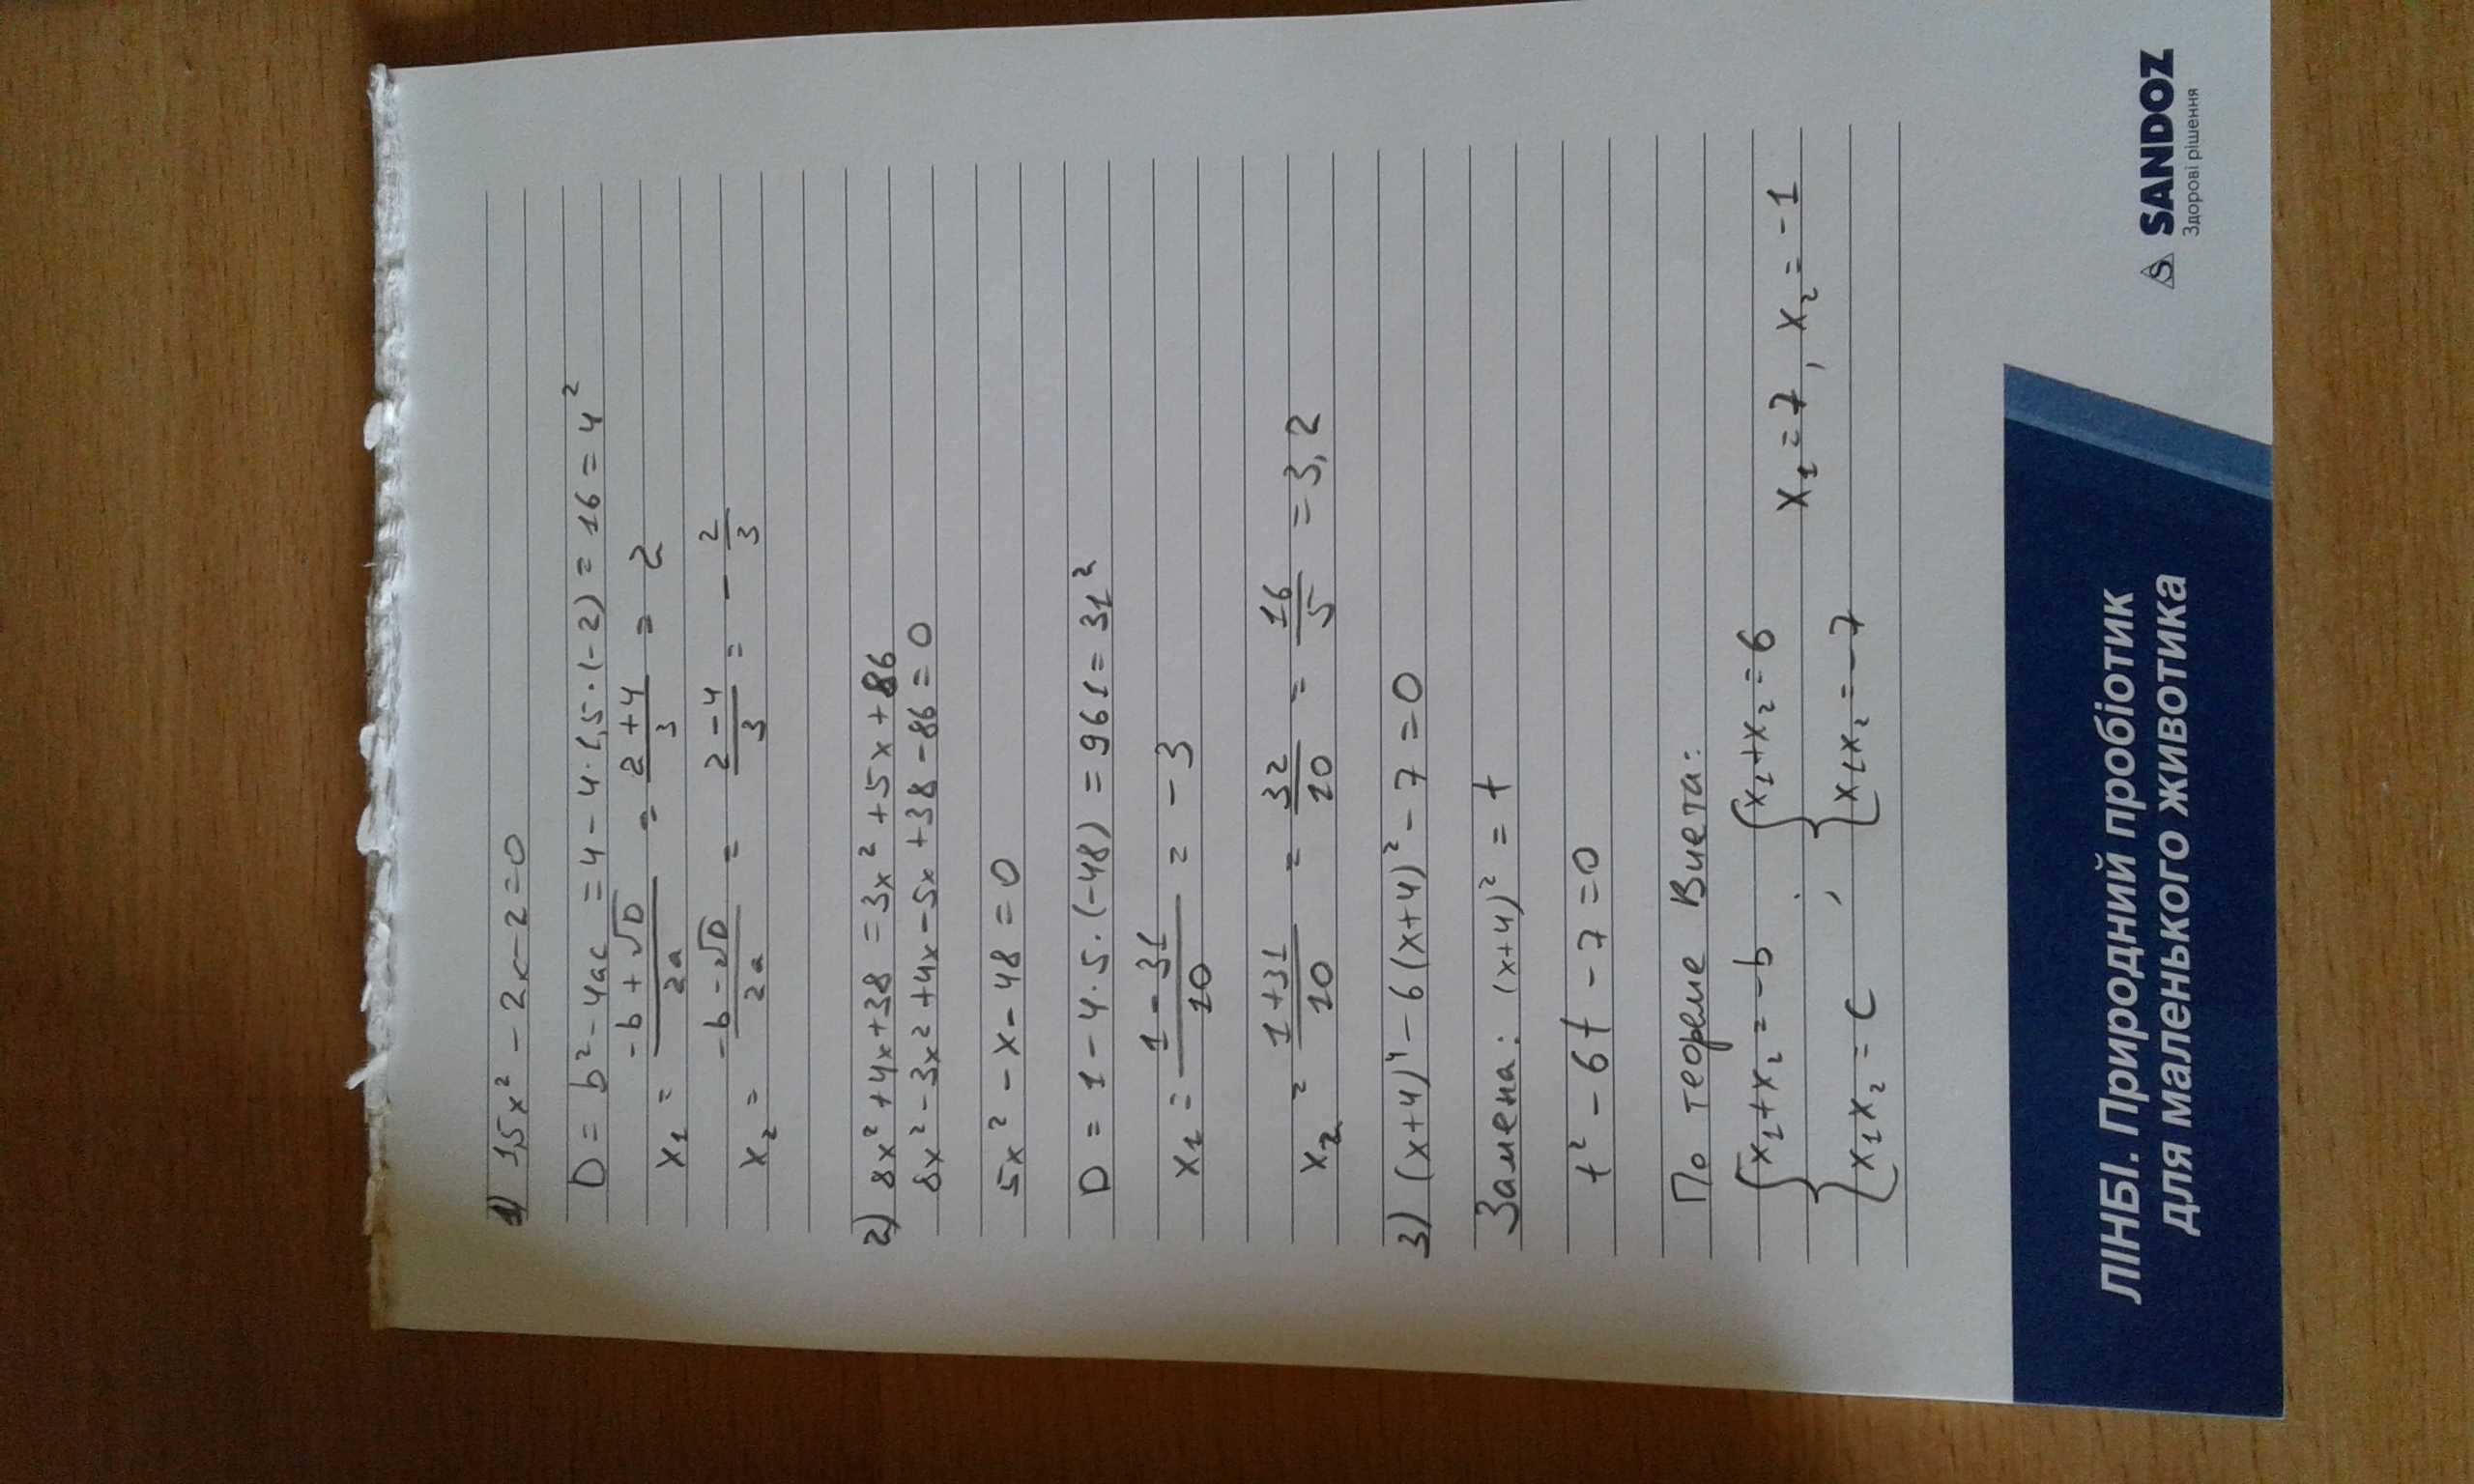 1) 1,5x² - 2x - 2 = 0
D = b² - 4ac = 4 - 4·1,5·(-2) = 16 = 4²
x₁ = (-b + √D)/2a = (2+4)/3 = 2
x₂ = (-b - √D)/2a = (2-4)/3 = - 2/3
2) 8x² + 4x + 38 = 3x² + 5x + 86
8x² - 3x² + 4x - 5x + 38 - 86 = 0
5x² - x - 48 = 0
D = 1 - 4·5·(-48) = 961 = 31²
x₁ = (1 - 31)/10 = -3
x₂ = (1+31)/10 = 32/10 = 16/5 = 3,2
3) (x+4)⁴ - 6(x+4)² - 7 = 0
Замена: (x+4)² = t
t² - 6t - 7 = 0
По теореме Виета:
{x₁+x₂ = -b {x₁+x₂ = 6
{x₁x₂ = c , {x₁x₂ = -7 x₁ = 7, x₂ = -1
ЛІНБІ. Природний пробіотик
для маленького животика
SANDOZ
Здорові рішення